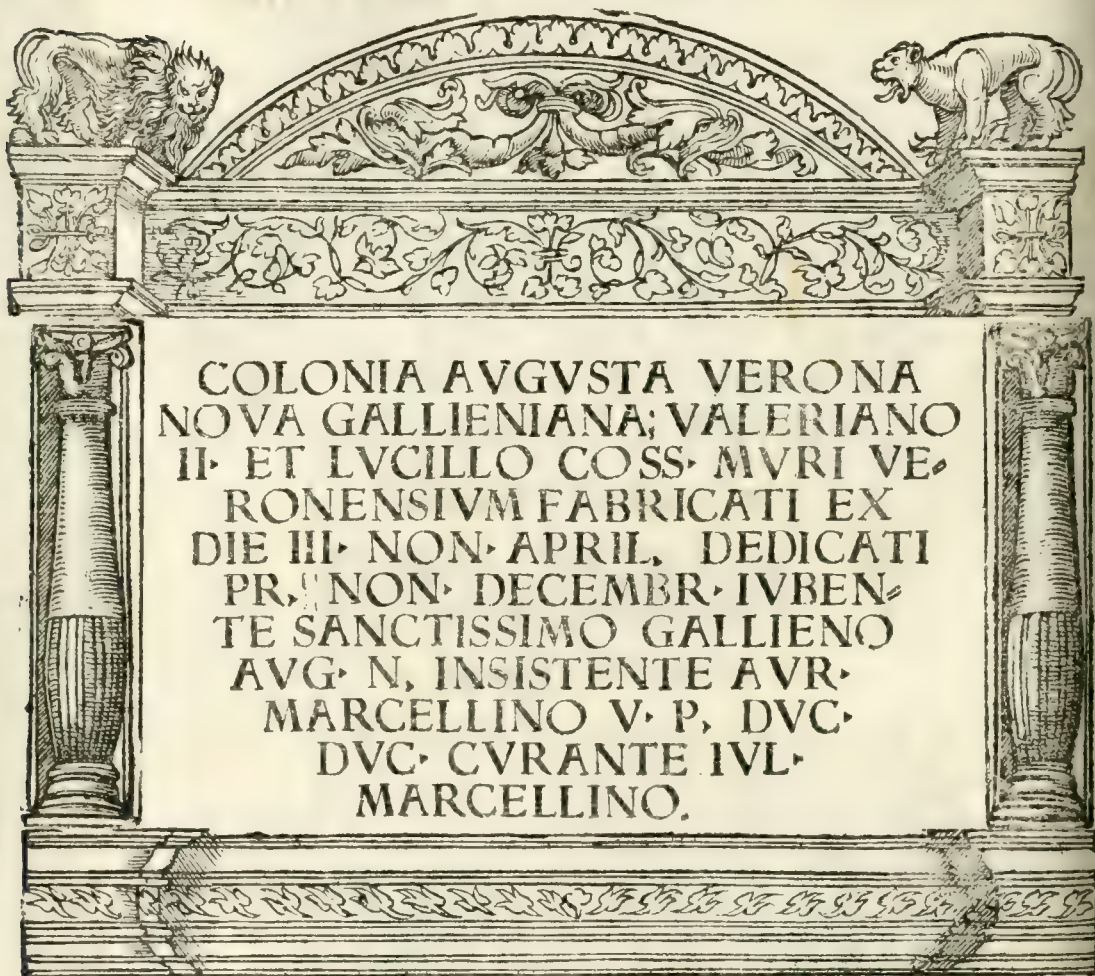 COLONIA AVGVSTA VERONA
NOVA GALLIENIANA; VALERIANO
II· ET LVCILLO COSS· MVRI VE⸗
RONENSIVM FABRICATI EX
DIE III· NON· APRIL, DEDICATI
PR, NON· DECEMBR· IVBEN⸗
TE SANCTISSIMO GALLIENO
AVG· N, INSISTENTE AVR·
MARCELLINO V· P, DVC·
DVC· CVRANTE IVL·
MARCELLINO.